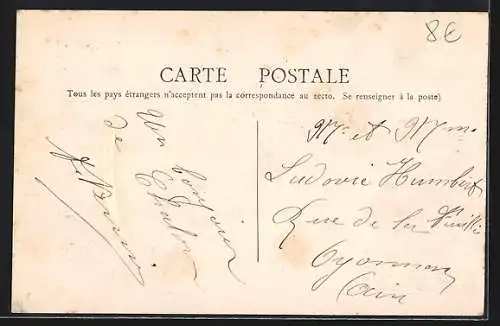 8€
CARTE POSTALE
Tous les pays étrangers n'acceptent pas la correspondance au recto. Se renseigner à la poste)
Un bonjour
de Chalon
Mr et Mme
Ludovic Humbert
Rue de la Vieille
Oyonnax
Ain